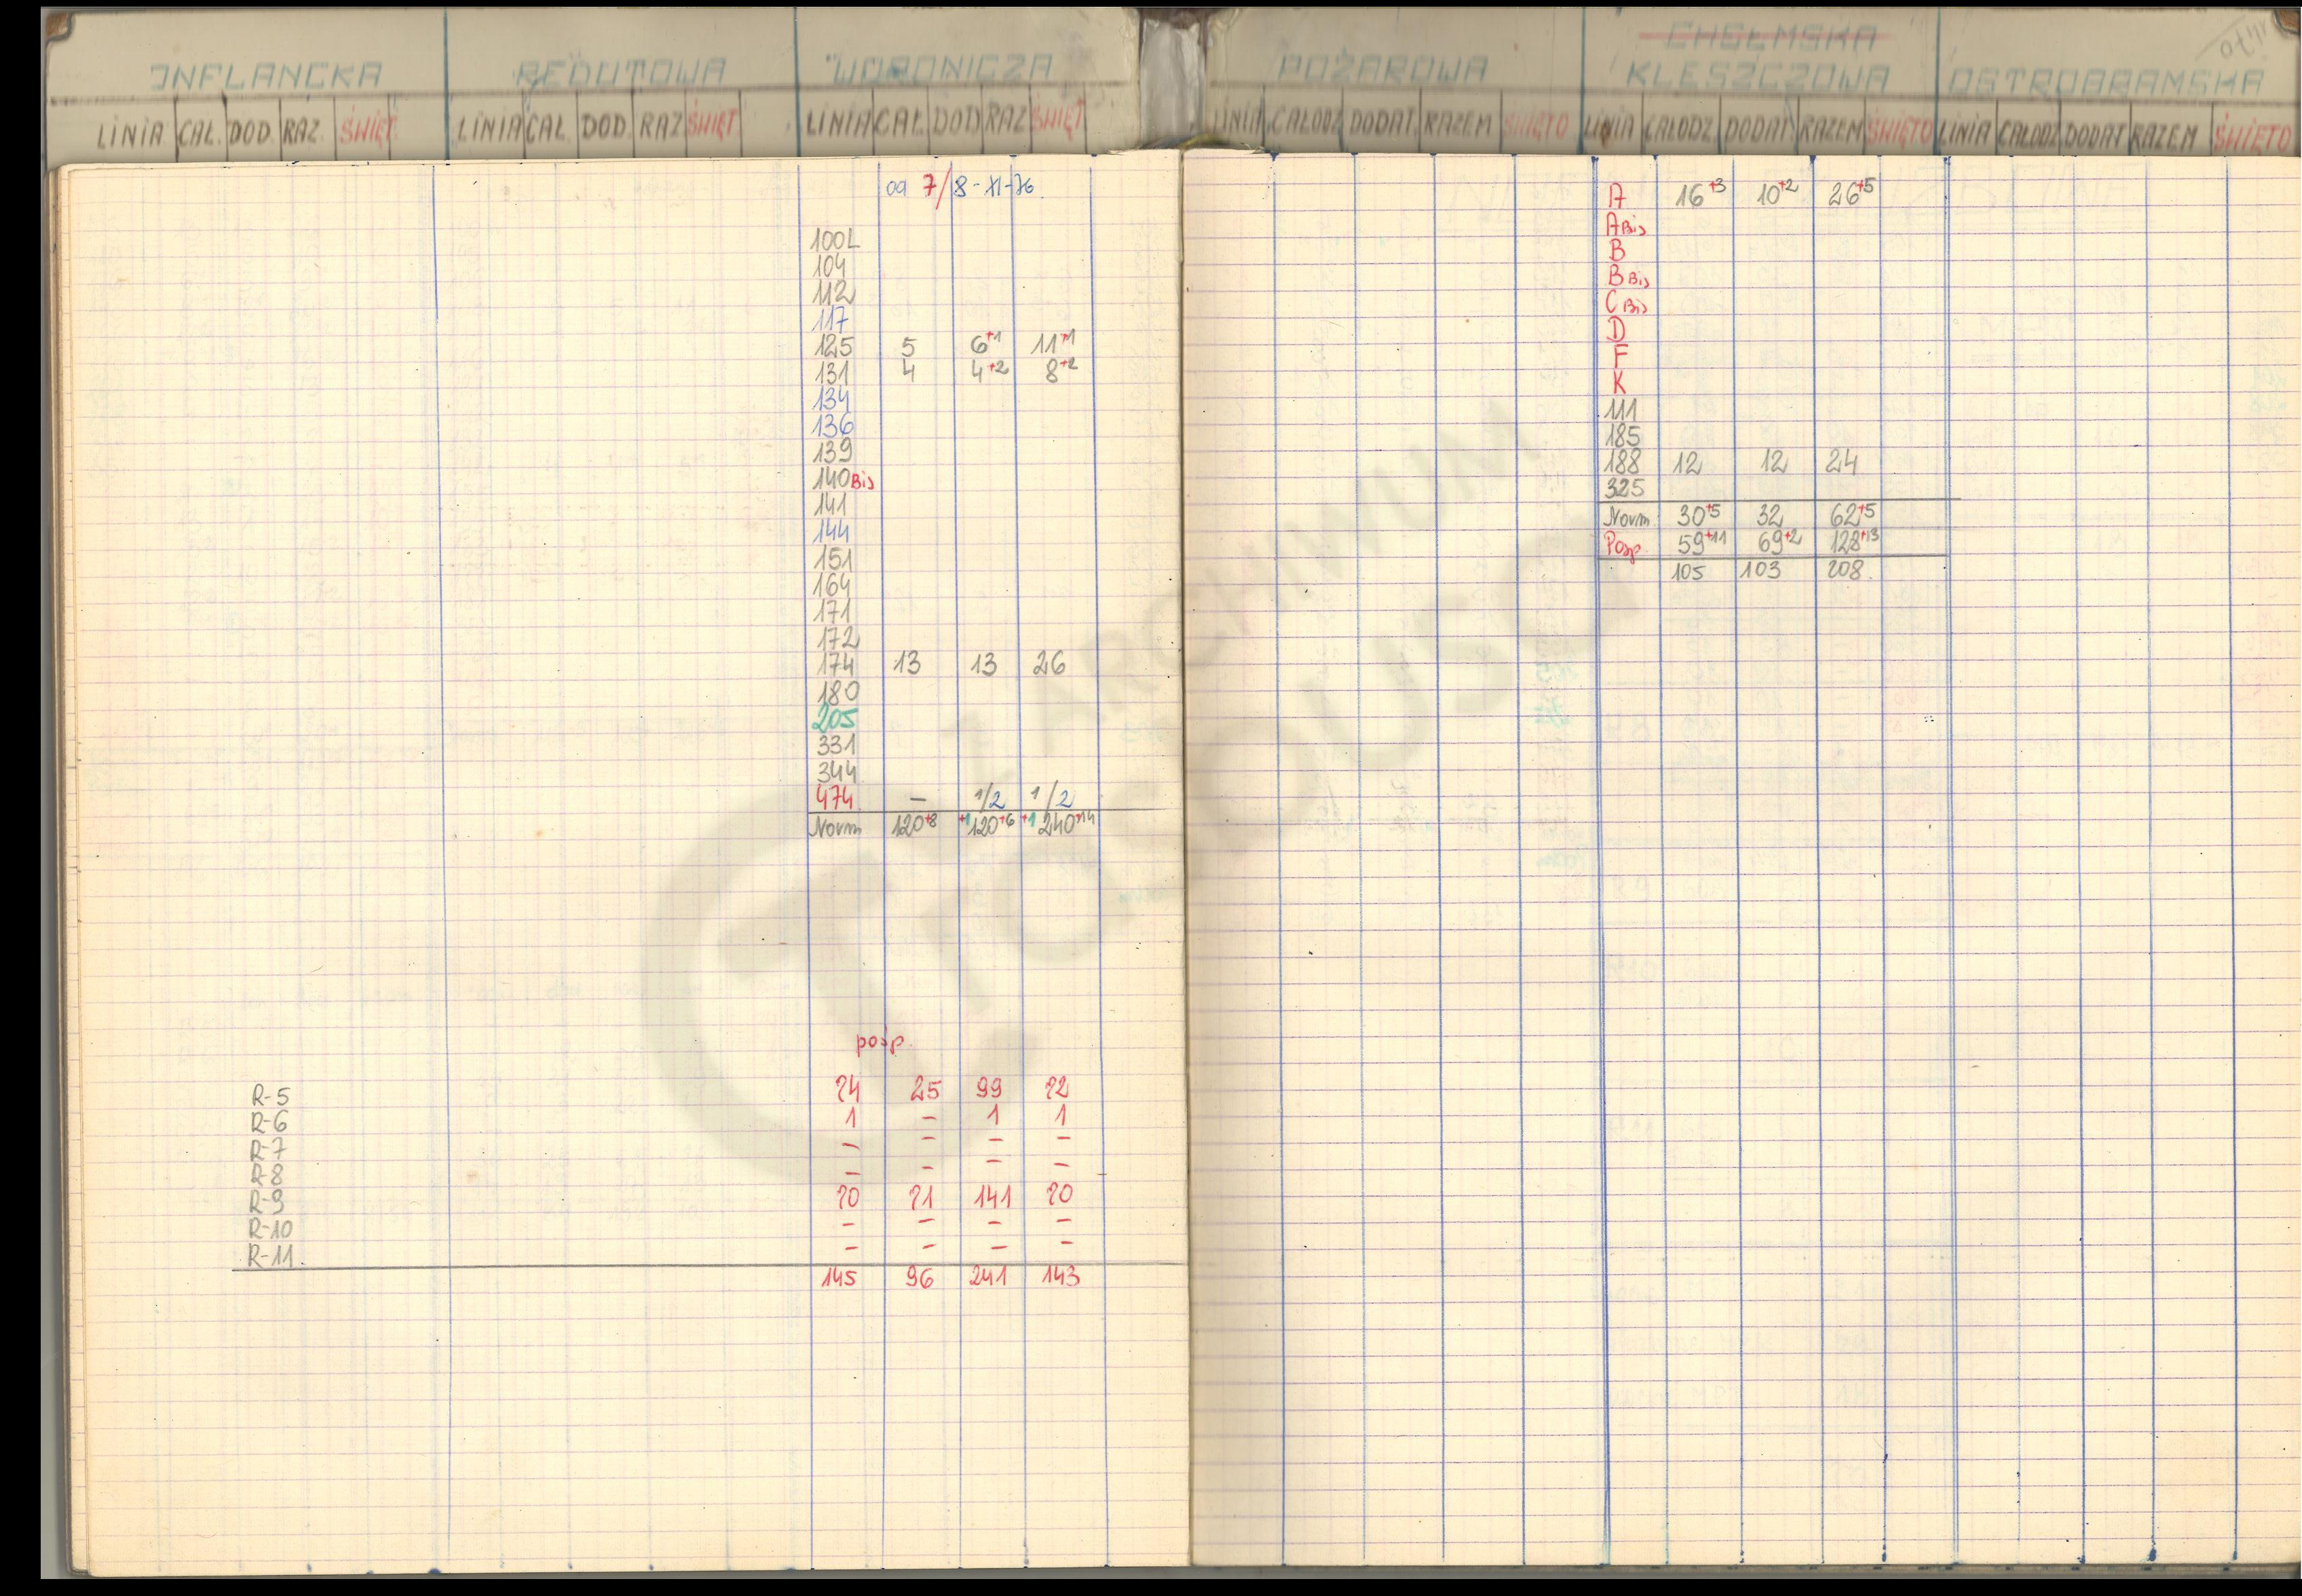 INFLANCKA REDUTOWA WORONICZA POŻAROWA CHEŁMSKA KLESZCZOWA OSTROBRAMSKA
LINIA CAŁ. DOD. RAZ. ŚWIĘT. LINIA CAŁ. DOD. RAZ ŚWIĘT LINIA CAŁ. DOD RAZ ŚWIĘT LINIA CAŁODZ. DODAT. RAZEM ŚWIĘTO LINIA CAŁODZ. DODAT. RAZEM ŚWIĘTO LINIA CAŁODZ. DODAT RAZEM ŚWIĘTO
od 7/8-XI-76
100L
104
112
117
125 5 6+1 11+1
131 4 4+2 8+2
134
136
139
140 Bis
141
144
151
164
171
172
174 13 13 26
180
205
331
344
474 – 1/2 1/2
Norm 120+8 +1 120+6 +1 240+14
posp.
R-5 74 25 99 72
R-6 1 – 1 1
R-7 – – – –
R-8 – – – –
R-9 70 71 141 70
R-10 – – – –
R-11. – – – –
145 96 241 143
A 16+3 10+2 26+5
A Bis
B
B Bis
C Bis
D
F
K
111
185
188 12 12 24
325
Norm 30+5 32 62+5
Posp. 59+11 69+2 128+13
105 103 208
Z ARCHIWUM